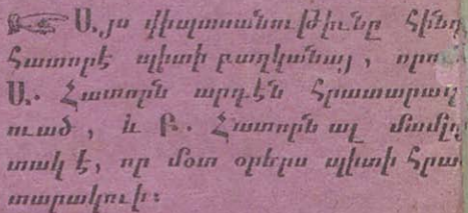 ☞ Ա․յս վիպասանութիւնը հինգ
հատորէ պիտի բաղկանայ, որու
Ա․ հատորն արդէն հրատարակ
ուած, և Բ․ հատորն ալ մամլոյ
տակ է, որ մօտ օրերս պիտի հրա
տարակուի։